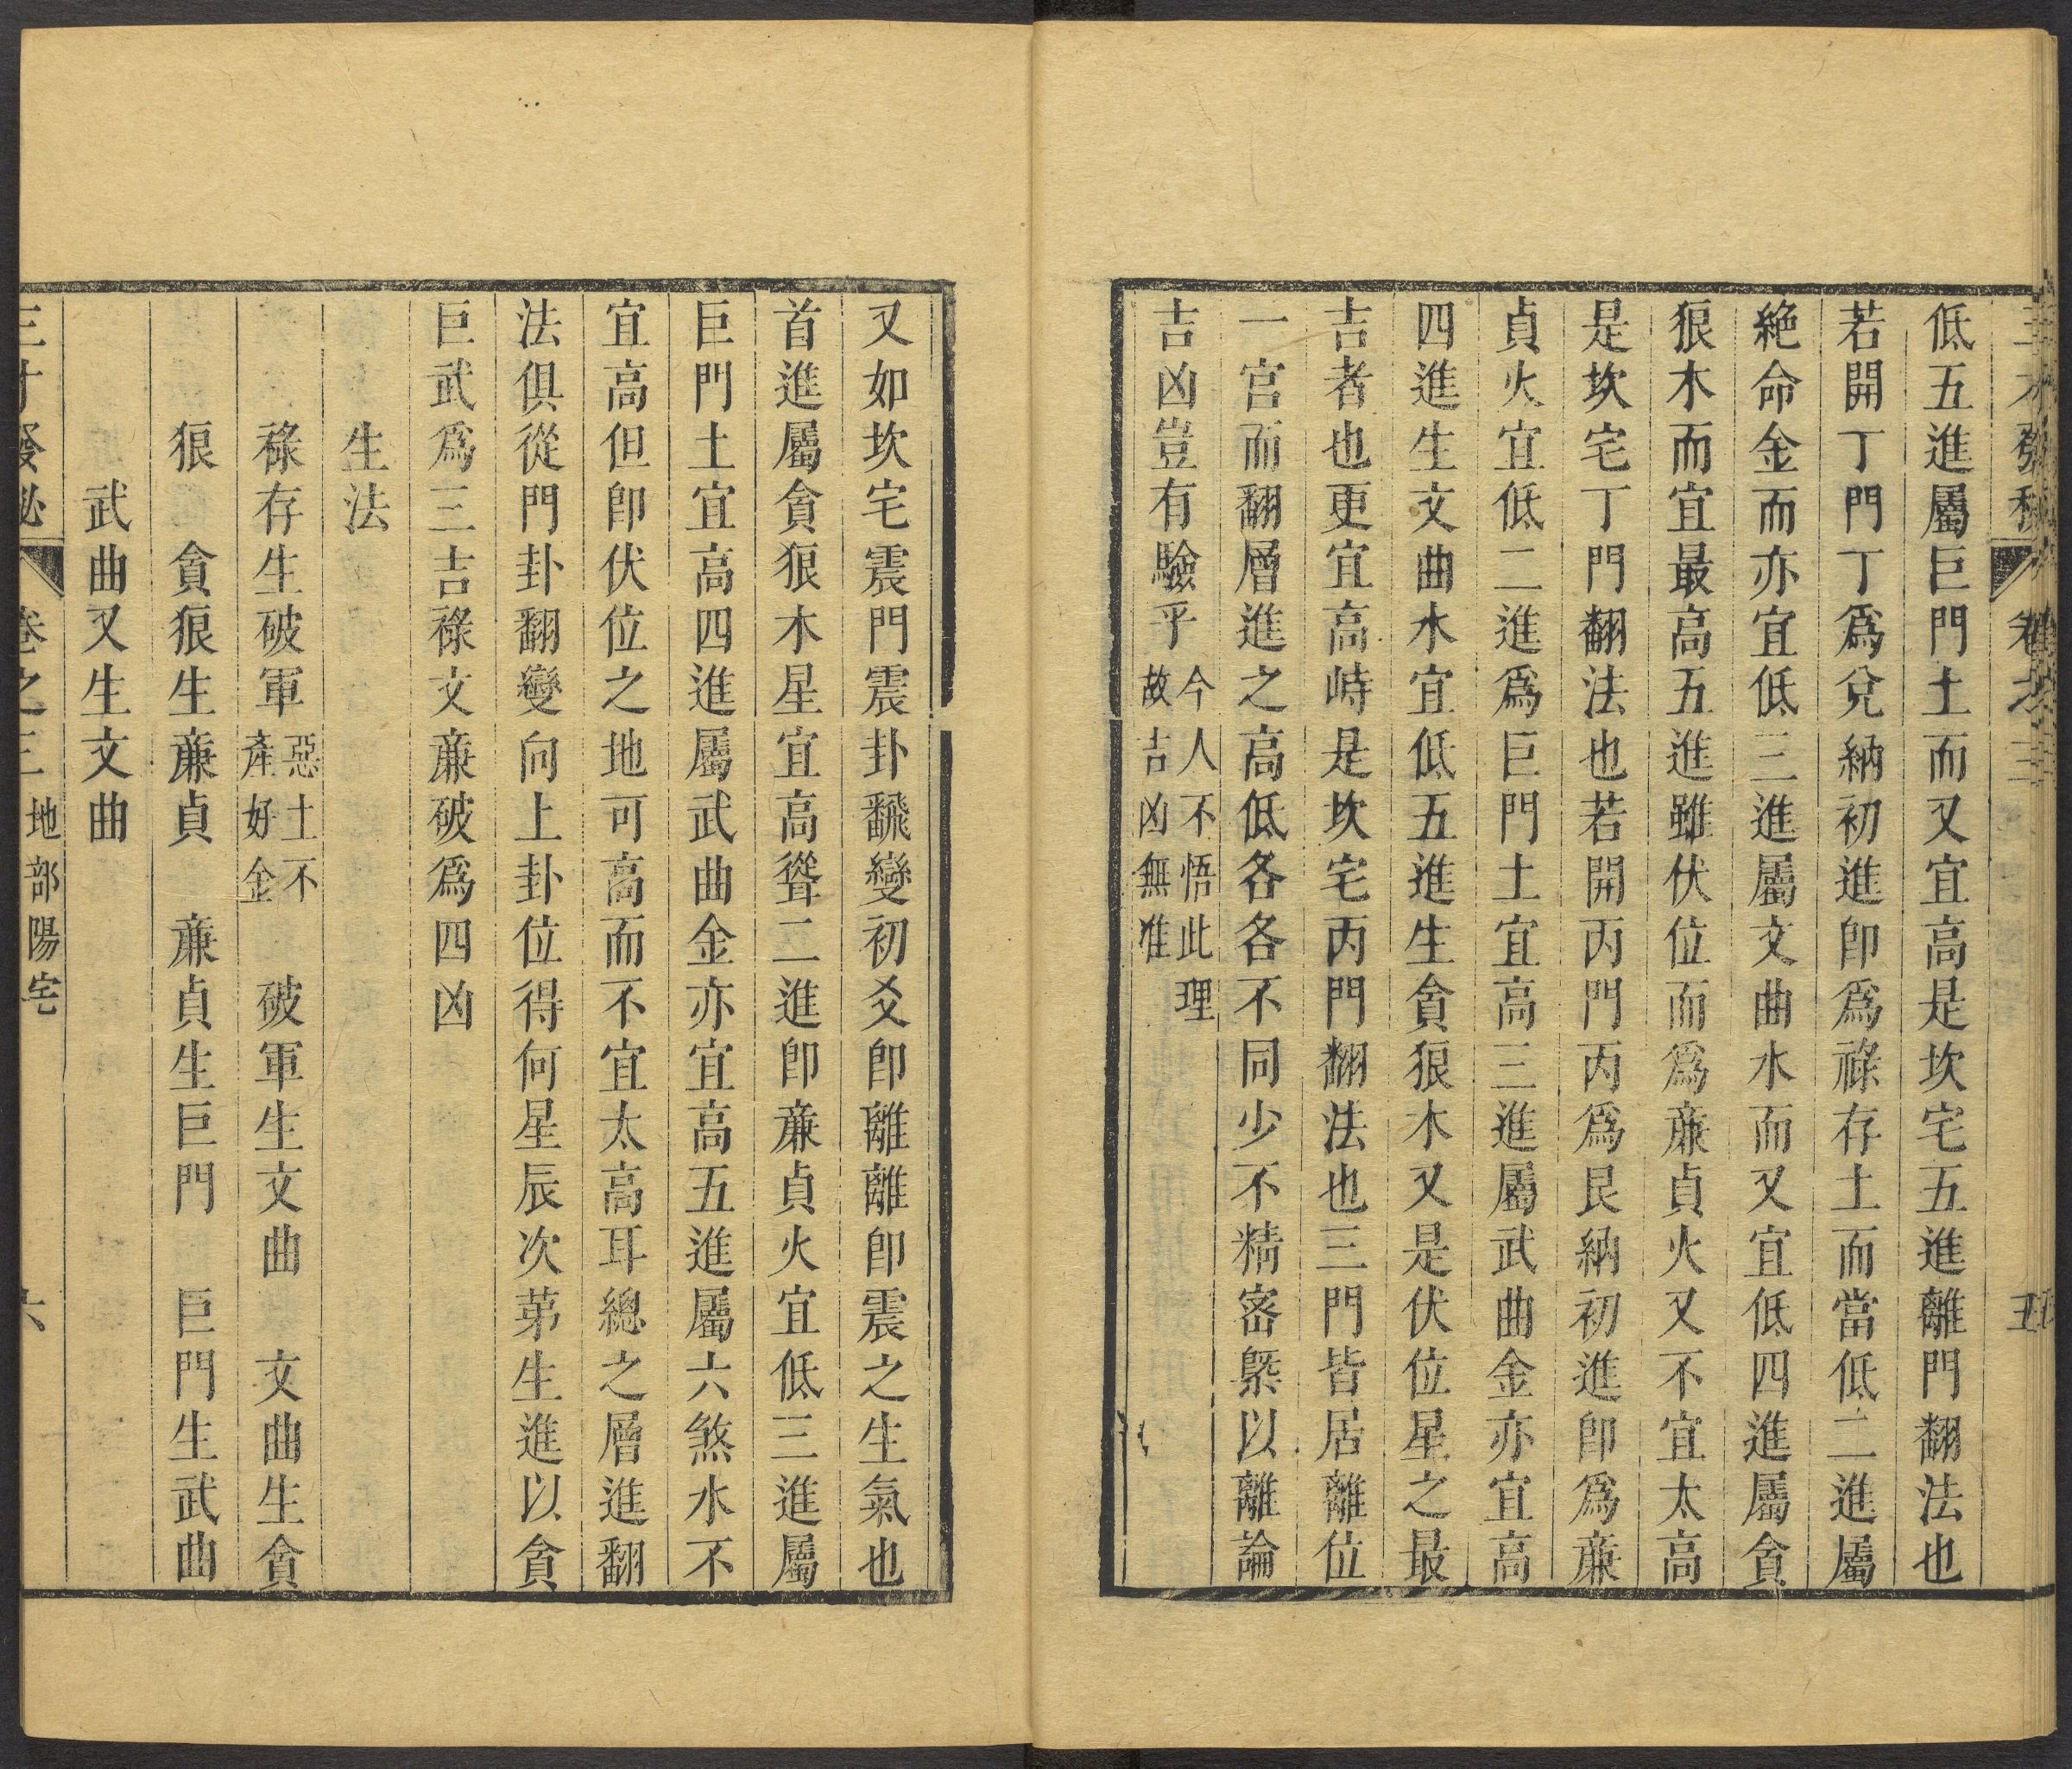 低五進屬巨門土而又宜高是坎宅五進離門翻法也
若開丁門丁爲兌納初進卽爲祿存土而當低二進屬
絶命金而亦宜低三進屬文曲水而又宜低四進屬貪
狼木而宜最高五進雖伏位而爲亷貞火又不宜太高
是坎宅丁門翻法也若開丙門丙爲艮納初進卽爲亷
貞火宜低二進爲巨門土宜高三進屬武曲金亦宜高
四進生文曲水宜低五進生貪狼木又是伏位星之最
吉者也更宜高峙是坎宅丙門翻法也三門皆居離位
一宮而翻層進之高低各各不同少不精密槩以離論
吉凶豈有驗乎今人不悟此理故吉凶無准
又如坎宅震門震卦飜變初爻卽離離卽震之生氣也
首進屬貪狼木星宜高聳二進卽亷貞火宜低三進屬
巨門土宜高四進屬武曲金亦宜高五進屬六煞水不
宜高但卽伏位之地可高而不宜太高耳總之層進翻
法俱從門卦翻變向上卦位得何星辰次苐生進以貪
巨武爲三吉祿文亷破爲四凶
生法
祿存生破軍惡土不產好金 破軍生文曲 文曲生貪
狼 貪狼生亷貞 亷貞生巨門 巨門生武曲
武曲又生文曲
三才發秘 卷之三 地部陽宅 六